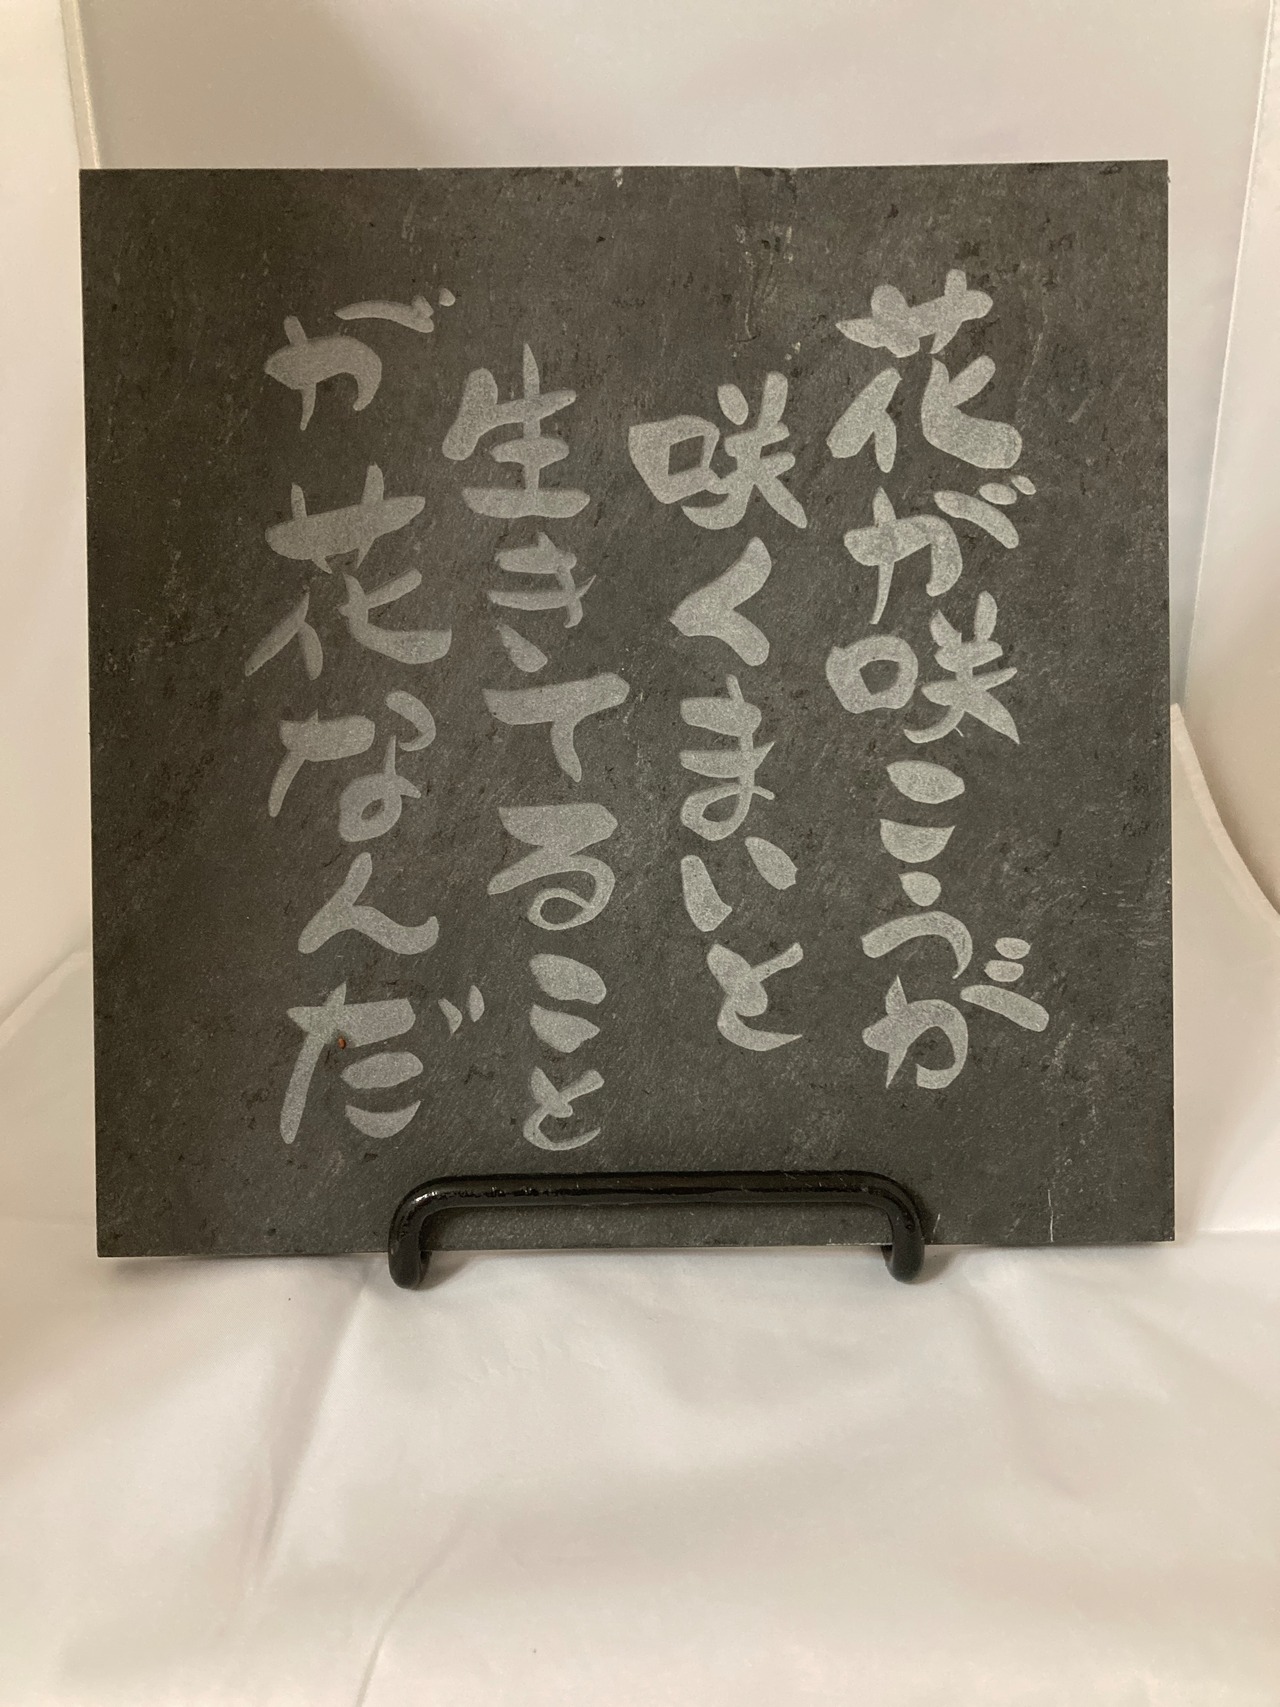 花が咲こうが
咲くまいと
生きてること
が花なんだ